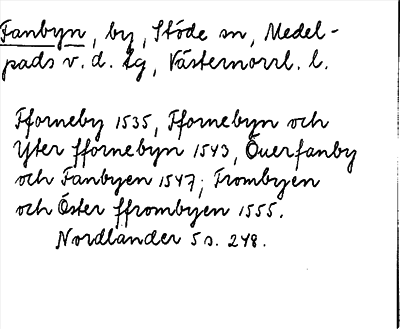 Fanbyn, by, Stöde sn, Medel-
pads v. d. tg, Västernorrl. l.
Fforneby 1535, Ffornebyn och
Ytter ffornebyn 1543, Öuerfanby
och Fanbyen 1547; Frombyen
och Öster ffrombyen 1555.
Nordlander 5 s. 248.